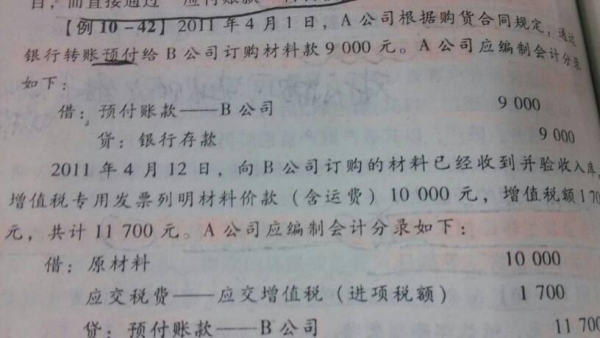 目，而直接通过"应付账款"
【例10-42】2011年4月1日，A公司根据购货合同规定，通过
银行转账预付给B公司订购材料款9 000元。A公司应编制会计分录
如下：
借：预付账款——B公司 9 000
贷：银行存款 9 000
2011年4月12日，向B公司订购的材料已经收到并验收入库，
增值税专用发票列明材料价款（含运费）10 000元，增值税额1 70
元，共计11 700元。A公司应编制会计分录如下：
借：原材料 10 000
应交税费——应交增值税（进项税额） 1 700
贷：预付账款——B公司 11 700